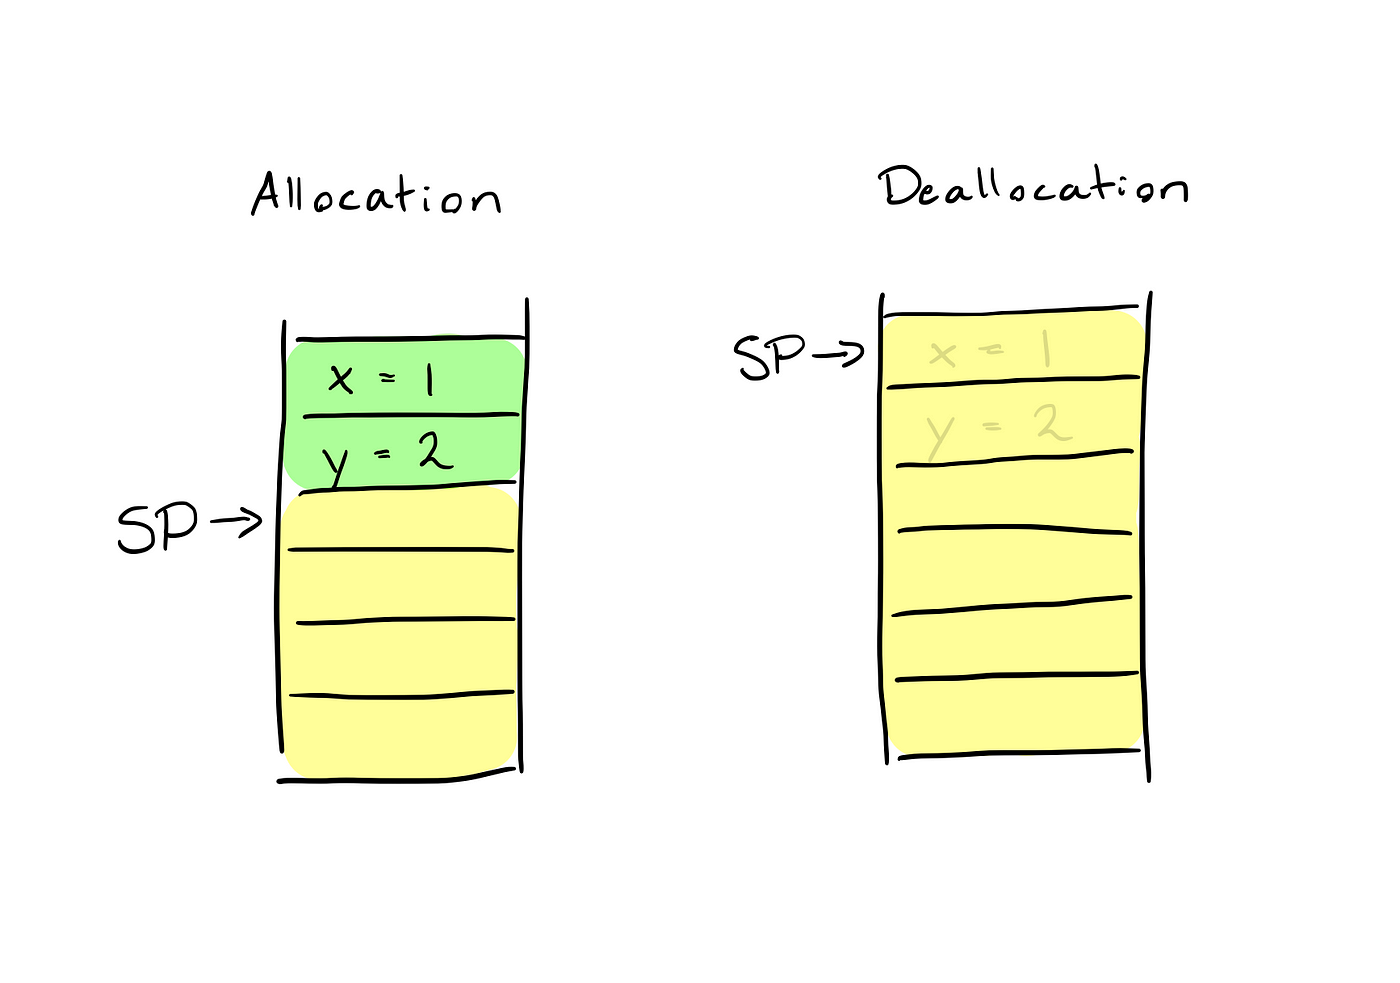 Allocation
SP →
x = 1
y = 2
Deallocation
SP →
x = 1
y = 2